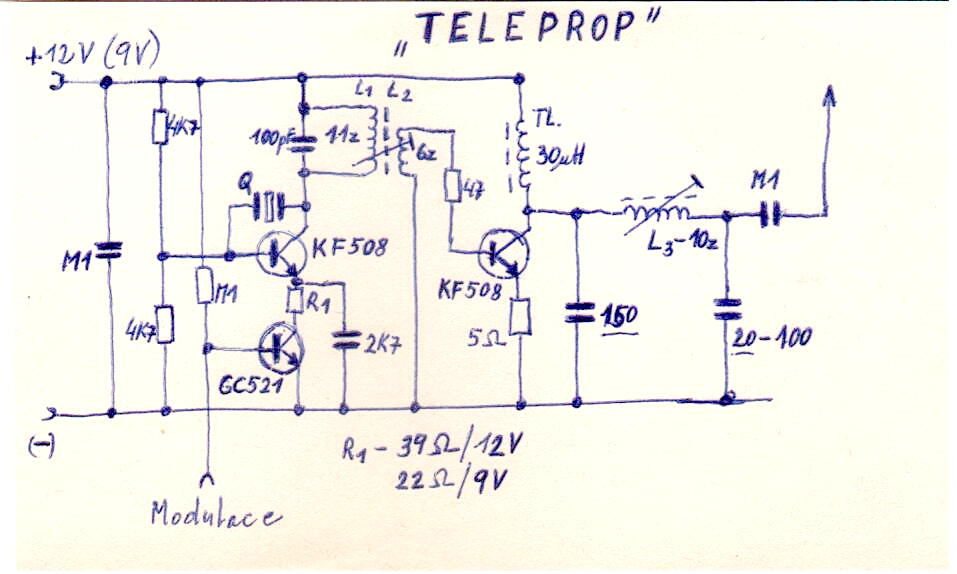 „TELEPROP”
+12V (9V)
L1 L2
4K7
100pF
11z
6z
TL.
30µH
Q
47
M1
KF508
M1
M1
KF508
L3-10z
R1
4K7
2K7
5Ω
150
20-100
GC521
(-)
R1 - 39Ω/12V
22Ω/9V
Modulace